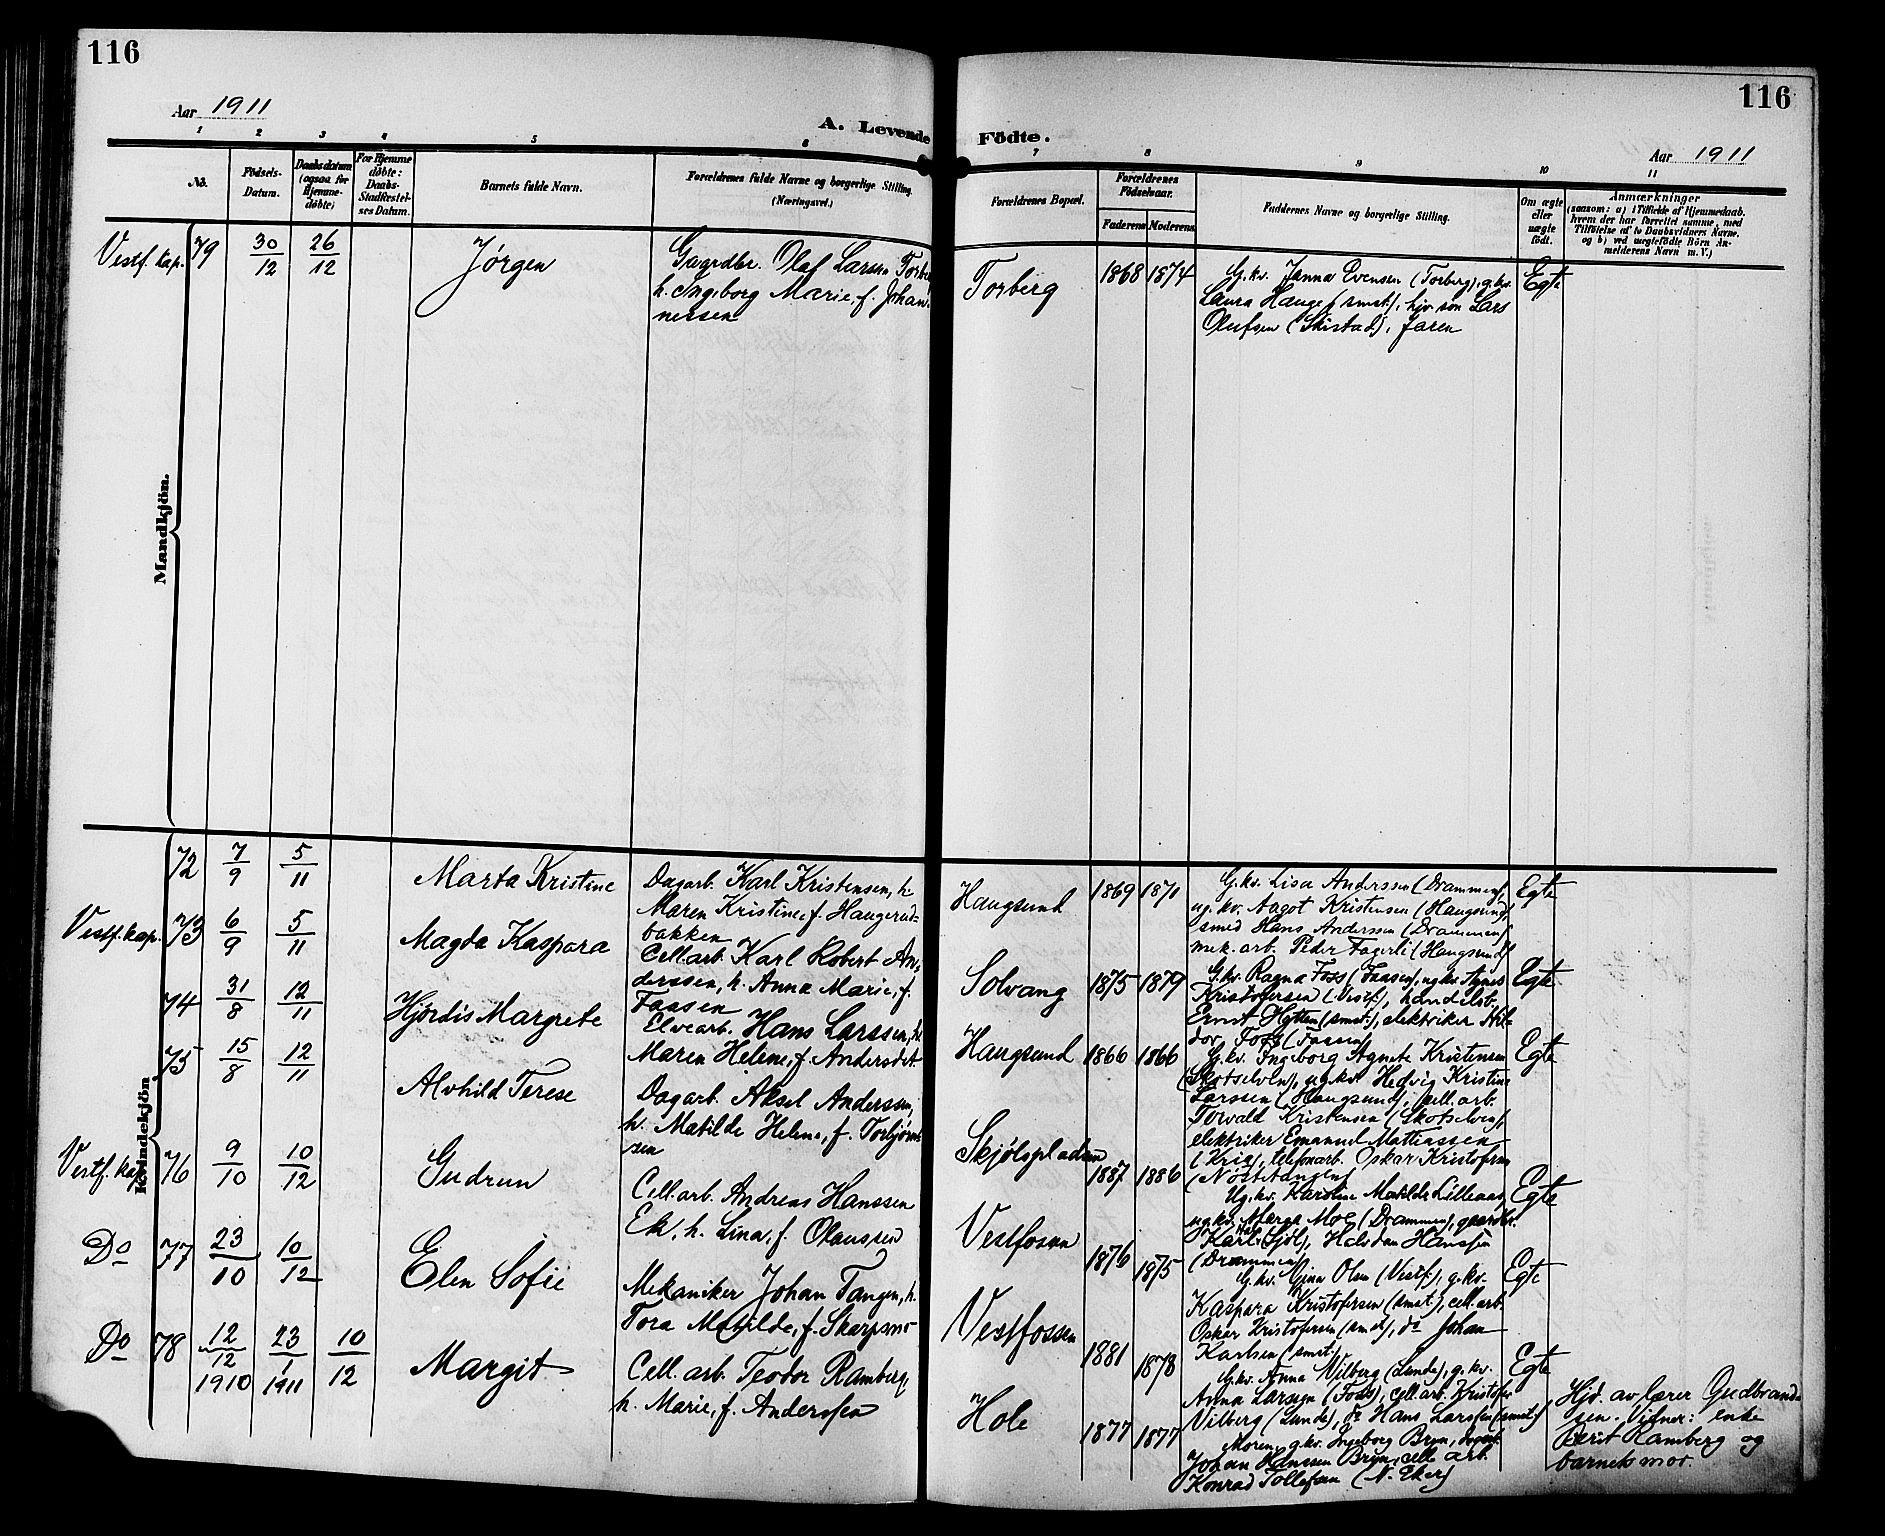 116
116
Aar 1911
A. Levende Födte.
Aar 1911
1 2 3 4 5 6 7 8 9 10 11
No.
Födsels-
Datum.
Daabsdatum
(ogsaa for
Hjemme-
døbte)
For Hjemme
døbte:
Daabs-
Stadfæstel-
ses Datum.
Barnets fulde Navn.
Forældrenes fulde Navne og borgerlige Stilling.
(Næringsvei.)
Forældrenes Bopæl.
Forældrenes
Födselsaar.
Faderens Moderens
Faddernes Navne og borgerlige Stilling.
Om ægte
eller
uægte
født.
Anmærkninger
(saasom: a) i Tilfælde af Hjemmedaab.
hvem der har forrettet samme, med
Tilföielse af to Daabsvidners Navne.
og b) ved uægtefödte Börn An-
melderens Navn m. V.)
Mandkjön.
Vestf. kap. 79
30/12
26/12
Jørgen
Gaardbr. Olaf Larsen Torberg
h. Ingeborg Marie, f. Johan-
nessen
Torberg
1868 1874
G.kv. Janna Evensen (Torberg), g.kv.
Laura Hauge (smst.), hjv. søn Lars
Olufsen (Skistad), Jaren
Egte
Kvindekjön
72
7/9
5/11
Marta Kristine
Dagarb. Karl Kristensen, h.
Maren Kristine, f. Haugerud-
bakken
Haugsund
1869 1871
G.kv. Lisa Anderssen (Drammen),
ug.kv. Aagot Kristensen (Haugsund),
smed Hans Anderssen (Drammen),
mek.arb. Peder Fagerli (Haugsund)
Egte
Vestf. kap. 73
6/9
5/11
Magda Kaspara
Cell.arb. Karl Robert An-
derssen, h. Anna Marie, f.
Faassen
Solvang
1875 1879
G.kv. Ragna Foss (Faasen), ug.kv. Agnes
Kristofersen (Vestf.), handelsb.
Ernst Hytten (smst.), elektriker Hil-
dor Foss (Fossen)
Egte
74
31/8
12/11
Hjørdis Margrete
Elvearb. Hans Larssen, h.
Maren Helene, f. Andersdet.
Haugsund
1866 1866
G.kv. Ingeborg Agnete Kristensen
(Skotselven), ug.kv. Hedvig Kristine
Larssen (Haugsund), cell.arb.
Torvald Kristensen (Skotselven),
elektriker Emanuel Mattiassen
(Kria), telefonarb. Oskar Kristofersen
(Nøstetangen)
Egte
75
15/8
12/11
Alvhild Terese
Dagarb. Aksel Anderssen,
h. Matilde Helene, f. Torbjørn-
sen
Skjølspladsen
1887 1886
Ug.kv. Karoline Matilde Lilleaas,
ug.kv. Marga Moe (Drammen), gaardbr.
Karl Sjöl, Halvdan Hanssen
(Drammen)
Egte
Vestf. kap. 76
9/10
10/12
Gudrun
Cell.arb. Andreas Hanssen
Ek, h. Lina, f. Olaussen
Vestfossen
1876 1875
G.kv. Gina Olsen (Vestf.), g.kv.
Kaspara Kristofersen (smst.), cell.arb.
Oskar Kristofersen (smst.), do Johan
Karlsen (smst.)
Egte
Do 77
23/10
10/12
Elen Sofie
Mekaniker Johan Tangen, h.
Tora Matilde, f. Skarpsmo
Vestfossen
1881 1878
G.kv. Anna Vilberg (Lunde), g.kv.
Anna Larssen (Foss), cell.arb. Kristofer
Vilberg (Lunde), do Hans Larssen (smst.)
Egte
Do 78
12/12 1910
23/1 1911
10/12
Margit
Cell.arb. Teodor Ramberg,
h. Marie, f. Anderssen
Hole
1877 1877
Moren, g.kv. Ingeborg Bryn, dagarb.
Johan Hanssen Bryn, celle arb.
Konrad Tollefsen (N. Eker)
Hjd. av lærer Gudbrand-
sen. Vidner: enke
Berit Ramberg og
barnets mor.